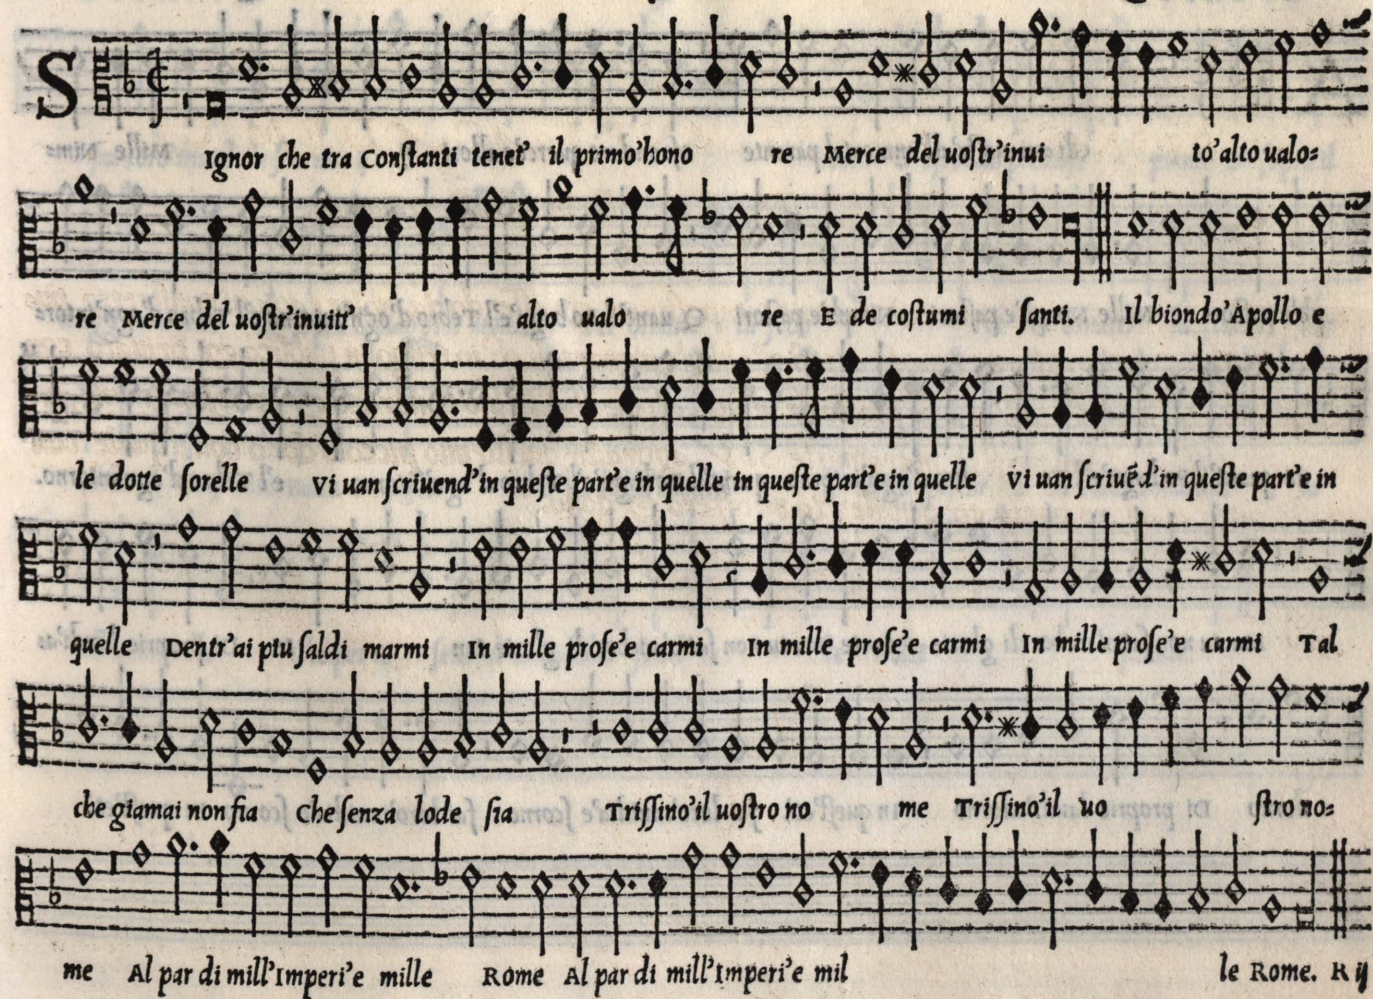 SIgnor che tra Constanti tenet' il primo'hono re Merce del uostr'inui to'alto ualo=
re Merce del uostr'inuitt' alto ualo re E de costumi santi. Il biondo'Apollo e
le dotte sorelle Vi uan scriuend'in queste part'e in quelle in queste part'e in quelle Vi uan scriuẽd'in queste part'e in
quelle Dentr'ai piu saldi marmi In mille prose'e carmi In mille prose'e carmi In mille prose'e carmi Tal
che giamai non fia Che senza lode sia Trissino'il uostro no me Trissino'il uo stro no=
me Al par di mill'Imperi'e mille Rome Al par di mill'Imperi'e mil le Rome. R ij